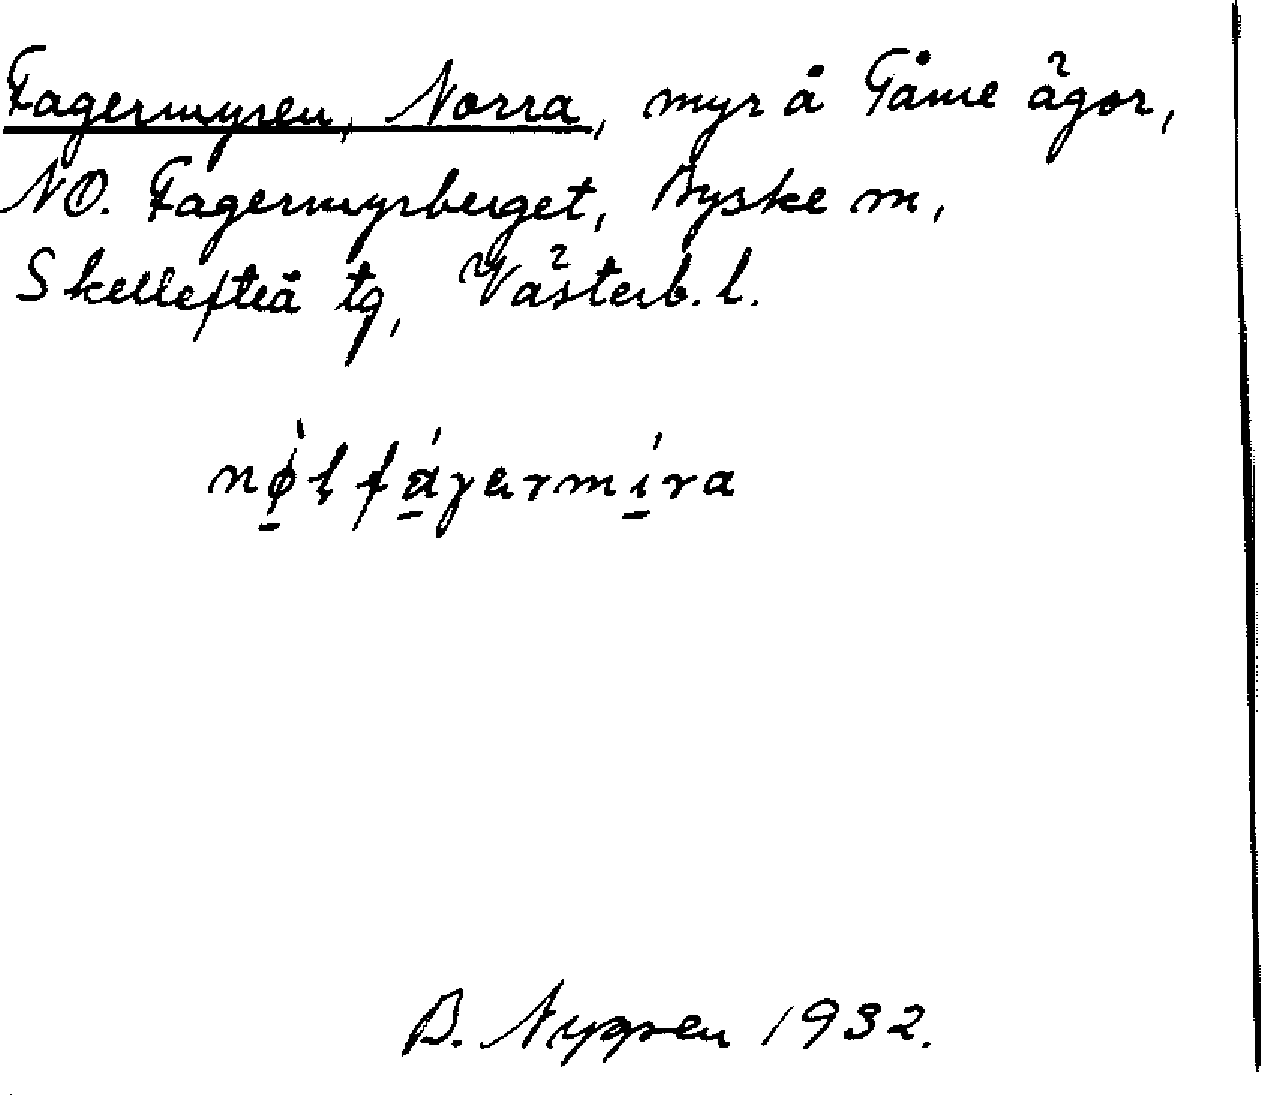 Fagermyren, Norra, myr å Tåme ägor,
NO. Fagermyrberget, Byske sn,
Skellefteå tg, Västerb. l.
nø̀l fáγερmíra
B. Nygren 1932.